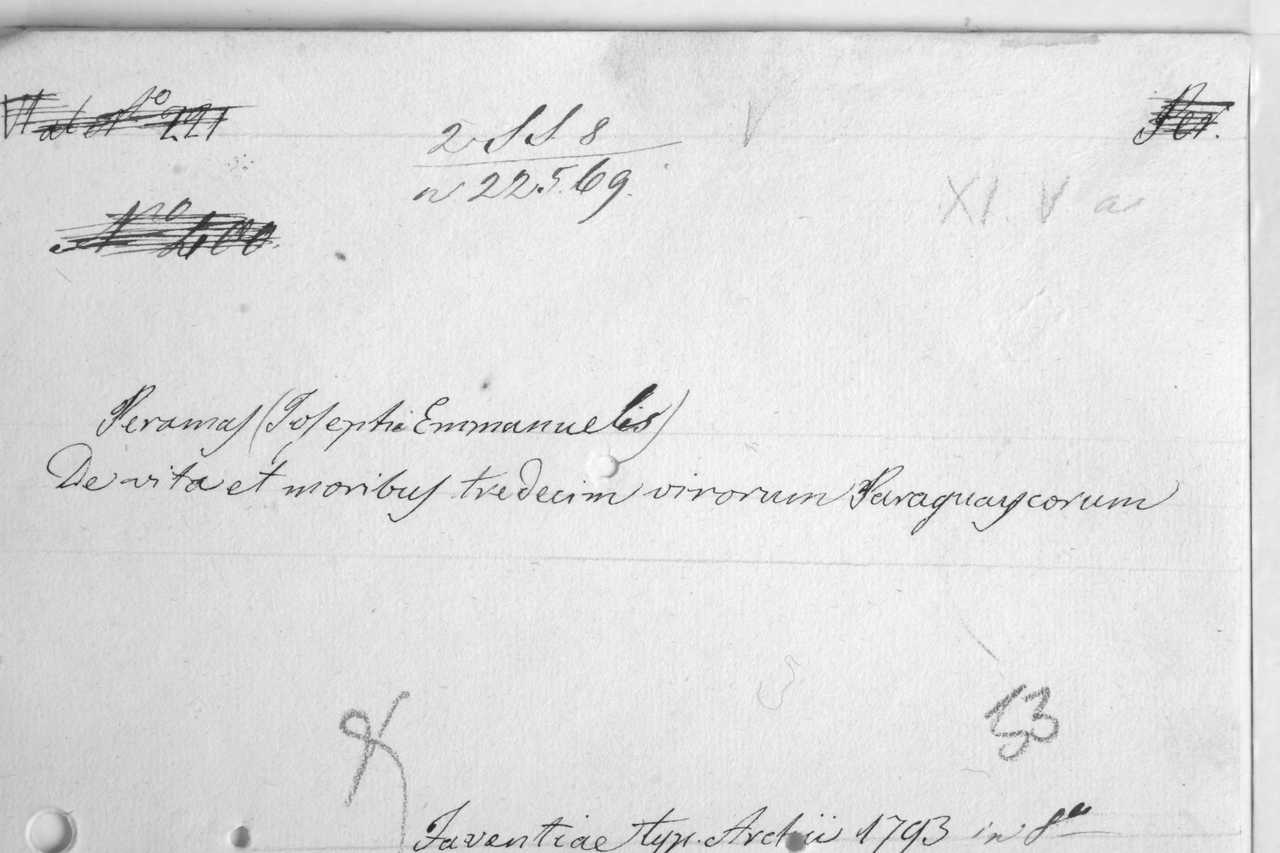 2 SS 8
n 22569.
XI. V a
Peramas (Josephi Emmanuelis)
De vita et moribus tredecim virorum Paraguaycorum
53
Faventiae typ. Archii 1793 in 8º